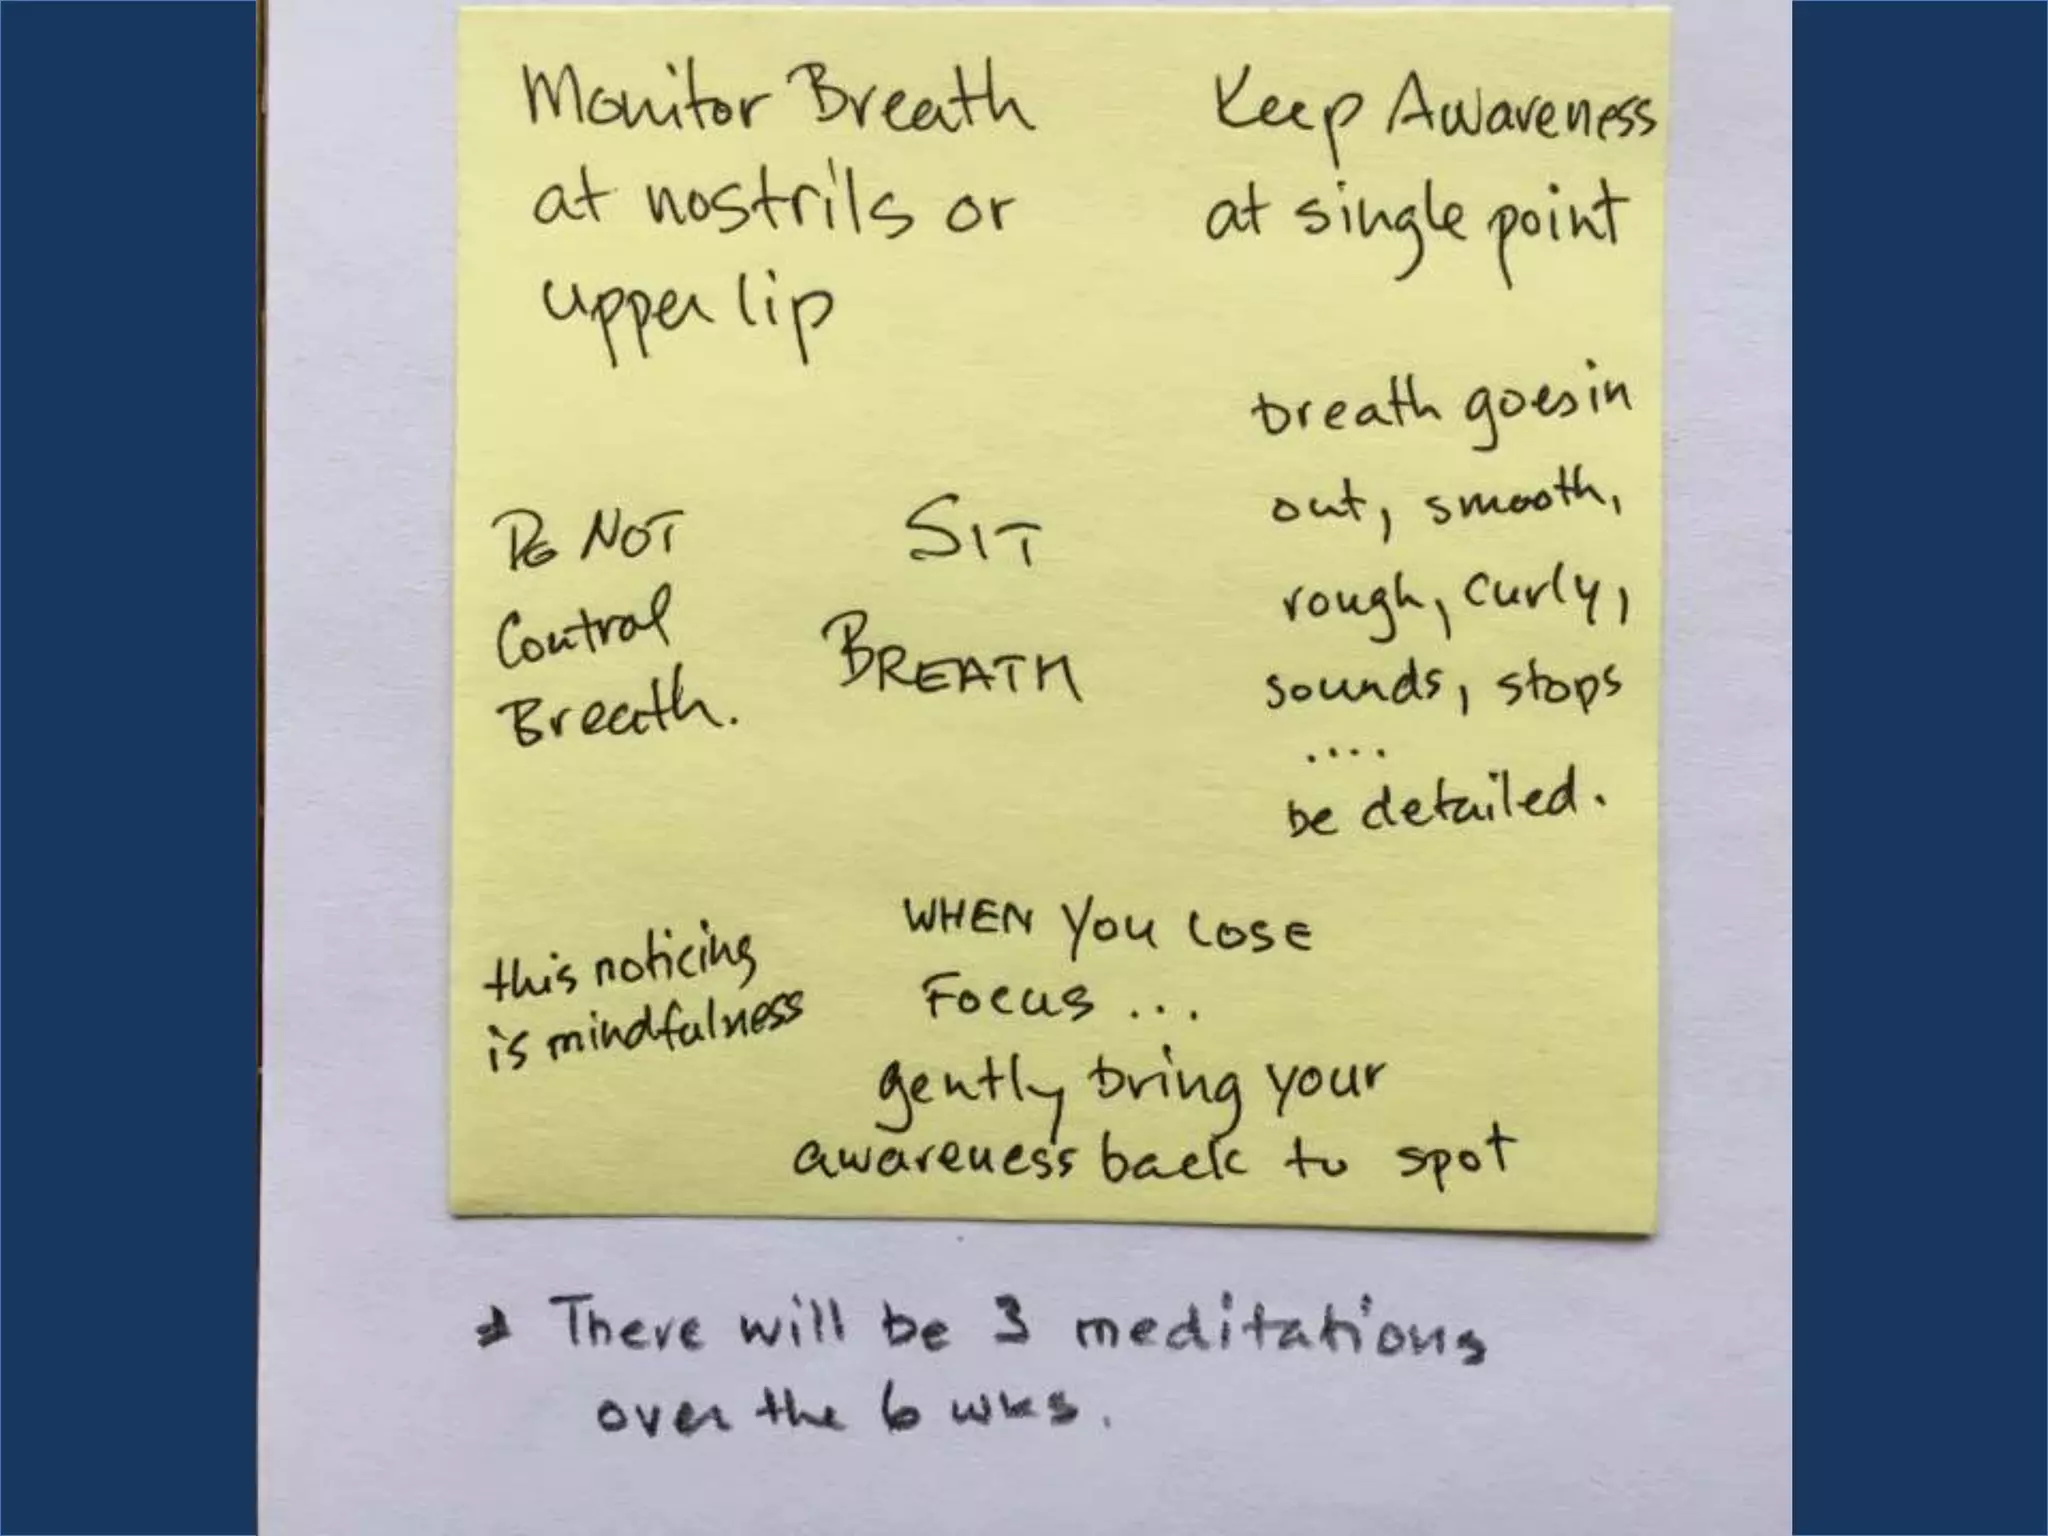 Monitor Breath
at nostrils or
upper lip
Keep Awareness
at single point
breath goes in
out, smooth,
rough, curly,
sounds, stops
....
be detailed.
DO NOT
Control
Breath.
SIT
BREATH
this noticing
is mindfulness
WHEN YOU LOSE
FOCUS ...
gently bring your
awareness back to spot
There will be 3 meditations
over the 6 wks.